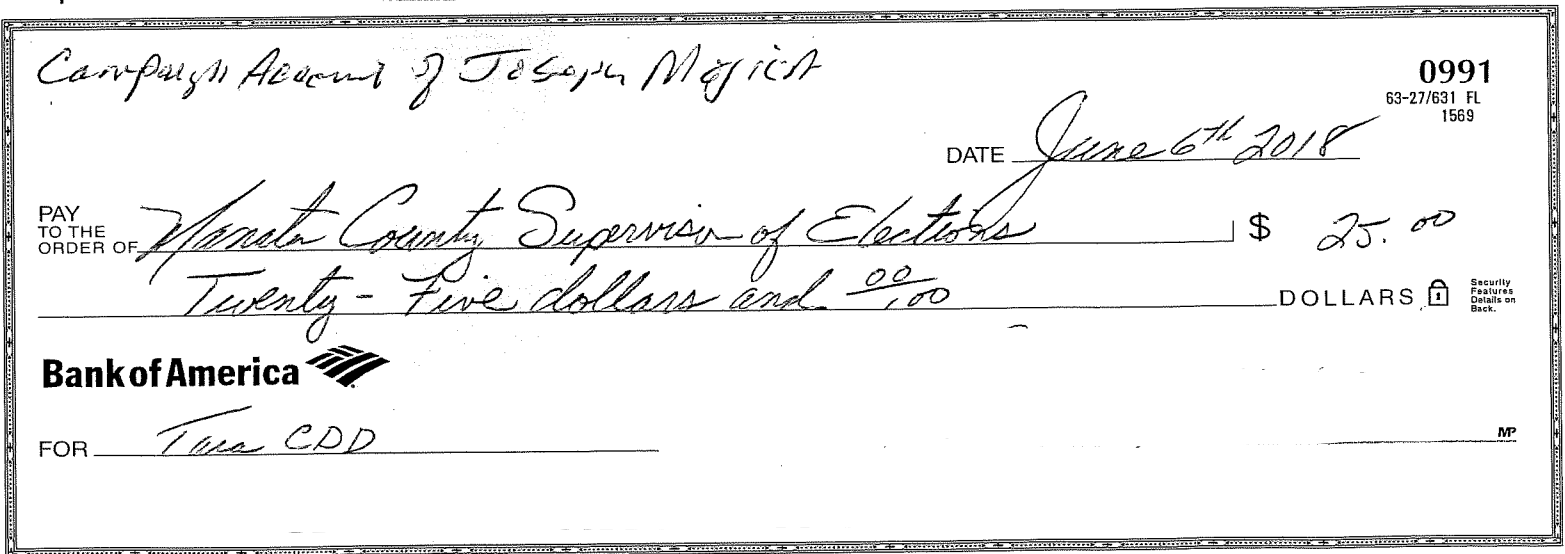 Campaign Account of Joseph Mojica
0991
63-27/631 FL
1569
DATE June 6th 2018
PAY TO THE ORDER OF Manatee County Supervisor of Elections $ 25.00
Twenty-Five dollars and 00/100 DOLLARS
Security Features Details on Back.
Bank of America
FOR Tara CDD
MP